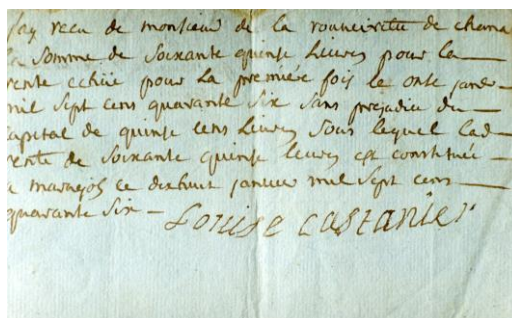 Jay recu de monsieur de la rouveirette de chana
la somme de soixante quinse Livres pour la
rente echüe pour la premiere fois le onse janvr
mil sept cens quarante six sans prejudice du
capital de quinse cens Livres sous lequel lad
rente de soixante quinse livres est constituée
a marvejols ce dixhuit janvier mil sept cens
quarante six
Louise castanier